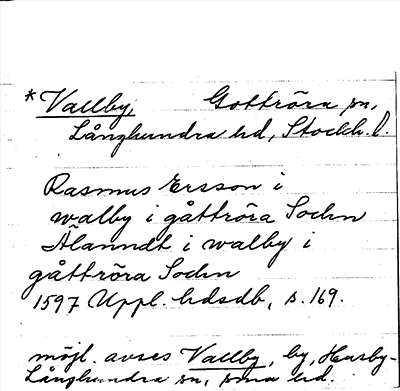 * Vallby, Gottröra sn,
Långhundra hd, Stockh. l.
Rasmus Ersson i
walby i gåttröra Sochn
Älanndt i walby i
gåttröra Sochn
1597 Uppl. hdsdb, s. 169.
möjl. avses Vallby, by, Husby-
Långhundra sn, sma hd.